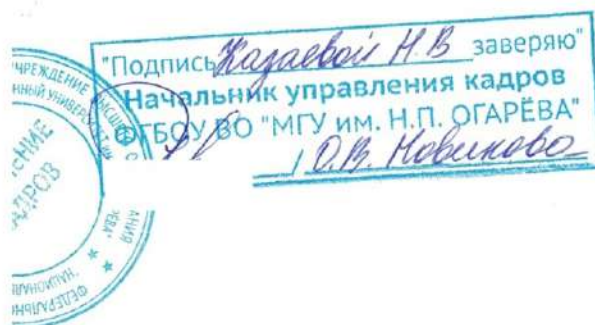 "Подпись Казаевой Н.В заверяю"
Начальник управления кадров
ФГБОУ ВО "МГУ им. Н.П. ОГАРЁВА"
/ О.В. Новикова
УЧРЕЖДЕНИЕ